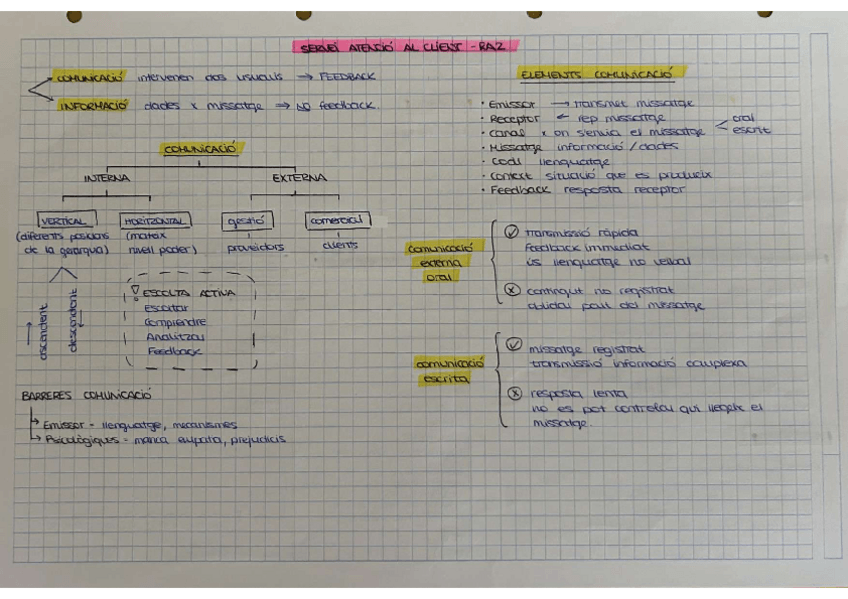 SERVEI ATENCIÓ AL CLIENT - RA2
COMUNICACIÓ intervenen dos usuaris → FEEDBACK
INFORMACIÓ dades x missatge → NO feedback.
COMUNICACIÓ
INTERNA EXTERNA
VERTICAL HORITZONTAL gestió comercial
(diferents posicions de la gerarquia)
(mateix nivell poder)
proveïdors
clients
ascendent
descendent
! ESCOLTA ACTIVA
Escoltar
Comprendre
Analitzar
Feedback
BARRERES COMUNICACIÓ
↳ Emissor - llenguatge, mecanismes
↳ Psicològiques - manca empatia, prejudicis
ELEMENTS COMUNICACIÓ
· Emissor → transmet missatge
· Receptor ← rep missatge
· Canal x on s'envia el missatge < oral
escrit
· Missatge informació / dades
· Codi llenguatge
· Context situació que es produeix
· Feedback resposta receptor
comunicació
externa
oral
transmissió ràpida
Feedback immediat
ús llenguatge no verbal
contingut no registrat
oblidar part del missatge
comunicació
escrita
missatge registrat
transmissió informació complexa
resposta lenta
no es pot controlar qui llegeix el
missatge.